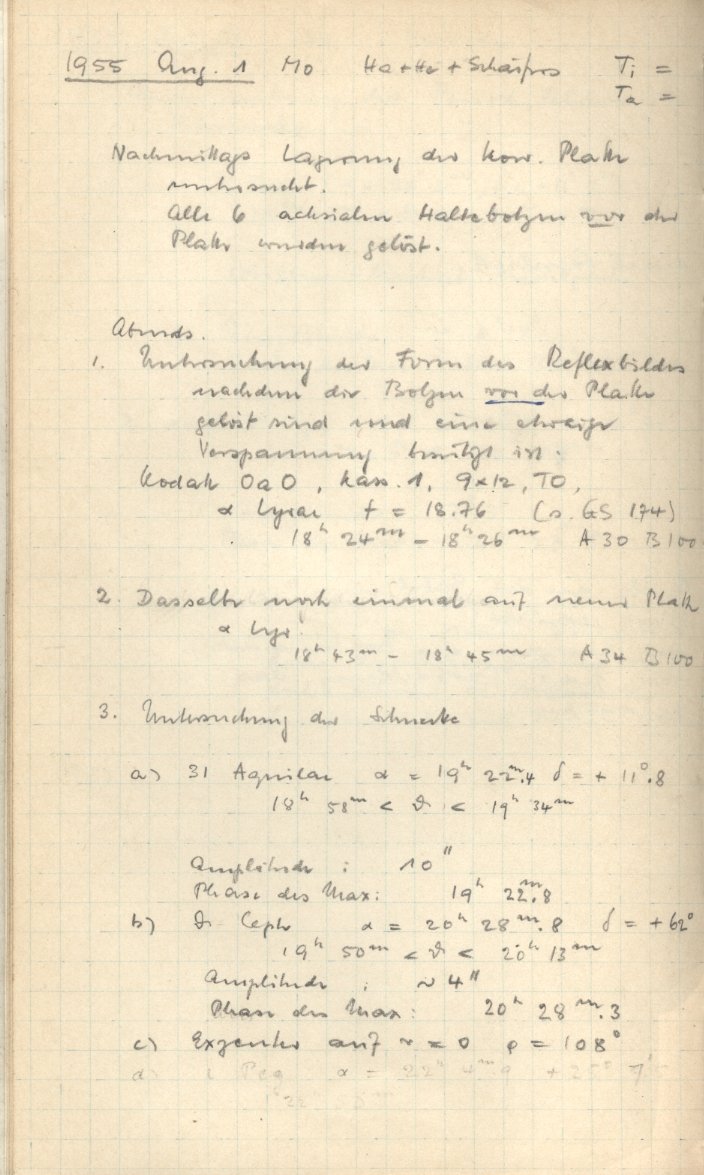 1955 Aug. 1 Mo Ha + He + Schürfros Ti =
Ta =
Nachmittags Lagerung der Korr. Platte
untersucht.
Alle 6 achsialen Haltebolzen vor der
Platte wurden gelöst.
Abends.
1. Untersuchung der Form des Reflexbildes
nachdem die Bolzen vor der Platte
gelöst sind und eine etwaige
Verspannung beseitigt ist.
Kodak OaO, Kass. 1, 9x12, TO,
α Lyrae f = 18.76 (s. GS 174)
18h 24m – 18h 26m A 30 B 100
2. Dasselbe noch einmal auf neuer Platte
α Lyr.
18h 43m – 18h 45m A 34 B 100
3. Untersuchung der Schnecke
a) 31 Aquilae α = 19h 22m.4 δ = + 11°.8
18h 58m < ϑ < 19h 34m
Amplitude : 10"
Phase des Max: 19h 22m.8
b) ϑ Ceph α = 20h 28m.8 δ = +62°
19h 50m < ϑ < 20h 13m
Amplitude : ~ 4"
Phase des Max: 20h 28m.3
c) Exzenter auf r = 0 φ = 108°
d) ι Peg α = 22h 4m.9 + 25°